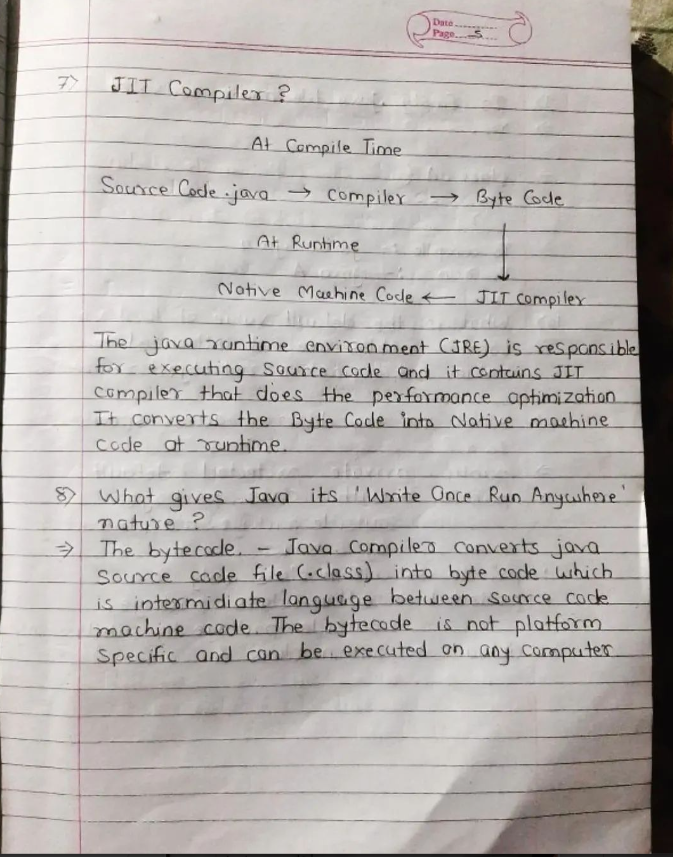 Date
Page 5
7> JIT Compiler ?
At Compile Time
Source Code .java → compiler → Byte Code
At Runtime
Native Machine Code ← JIT compiler
The java runtime environment (JRE) is responsible
for executing source code and it contains JIT
compiler that does the performance optimization
It converts the Byte Code into Native machine
code at runtime.
8> What gives Java its 'Write Once Run Anywhere'
nature ?
⇒ The bytecode. - Java compiler converts java
source code file (.class) into byte code which
is intermidiate language between source code
machine code. The bytecode is not platform
specific and can be executed on any computer